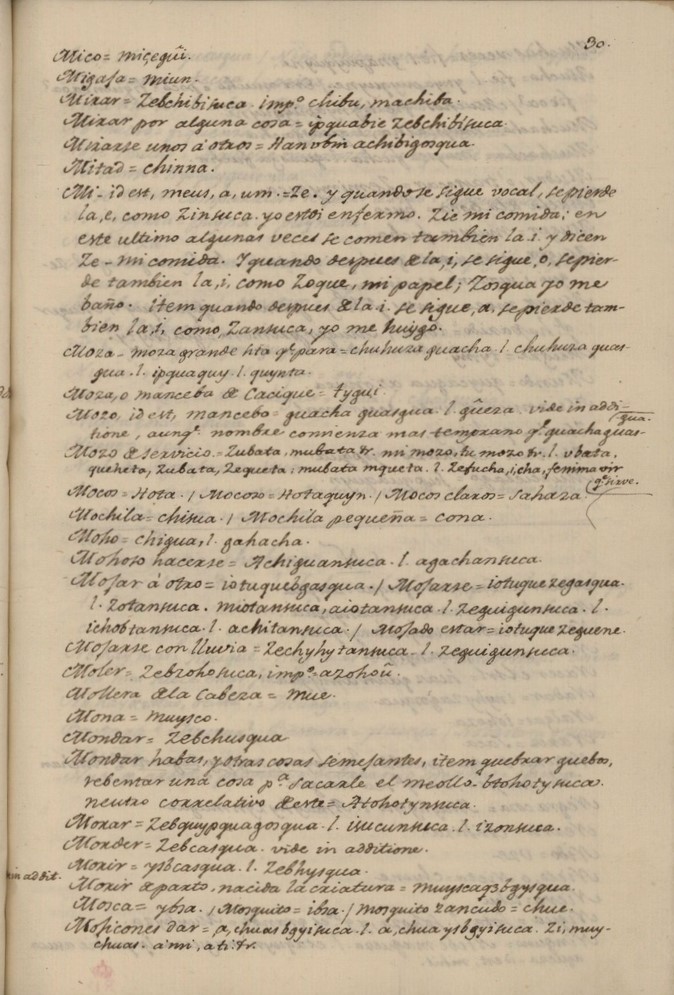 30.
Mico= miçegûi.
Migaja= miun.
Mirar= Zebchibisuca. imp.o chibu, machiba.
Mirar por alguna cosa= ipquabie zebchibisuca.
Mirarse unos a otros= Hanubin achibigosqua.
Mitad= chinna.
Mi- id est, meus, a, um.=Ze. y quando se sigue vocal, se pierde
la, e, como Zinsuca. yo estoi enfermo. Zie mi comida; en
este ultimo algunas veces se comen tambien la .i. y dicen
Ze- mi comida. Y quando despues de la, i, se sigue, o, se pier-
de tambien la, i, como Zoque, mi papel; Zosqua yo me
baño. item quando despues de la .i. se sigue, a, se pierde tam-
bien la, i, como, Zansuca, yo me huÿgo.
Moza- moza grande hta q.e para= chuhuza guacha .l. chuhuza guas-
gua .l. ipquaquy .l. quynta.
Moza, o manceba de Cacique= tygui.
Mozo, id est, mancebo= guacha guasgua .l. gûeza. vide in addi-
tione, aunq.e nombre comienza mas temprano q.e guacha guas-
gua.
Mozo de servicio.= Zubata, mubata &r. mi mozo, tu mozo &r. l. ubata.
quecheta, Zubata, Zequeta: mubata mqueta. l. Zefucha, i, cha, femina vir
q.e sirve.
Mocos= Hota. / Mocoso= Hotaquyn. / Mocos claros= Sahaza
Mochila= chisua. / Mochila pequeña= cona.
Moho= chigua, l. gahacha.
Mohoso hacerse= Achiguansuca. l. agachansuca.
Mojar á otro= iotuquebgasqua. / Mojarse= iotuque zegasqua.
l. zotansuca. miotansuca, aiotansuca .l. zeguigunsuca. l.
ichobtansuca. l. achitansuca. / Mojado estar= iotuque zeguene.
Mojarse con lluvia= Zechyhytansuca. l. zeguigunsuca.
Moler= Zebzohosuca, imp.o= azohoû.
Mollera de la Cabeza= mue.
Mona= muysco.
Mondar= Zebchusqua
Mondar habas, y otras cosas semejantes, item quebrar guebos,
rebentar una cosa p.a sacarle el meollo. btohotysuca.
neutro correlativo de este= Atohotynsuca.
Morar= Zebquypquagosqua. l. isucunsuca. l. izonsuca.
Morder= Zebcasqua. vide in additione.
Morir= ysbcasqua. l. Zebhysqua.
in addit.
Morir de parto, nacida la criatura= muyscaqzbgysqua.
Mosca= ybza. / Mosquito= ibza. / mosquito zancudo= chue.
Mojicones dar= a, chuas bgyisuca. l. a, chua ysbgyisuca. Zi, muy-
chuas. a mi, a ti. &r.